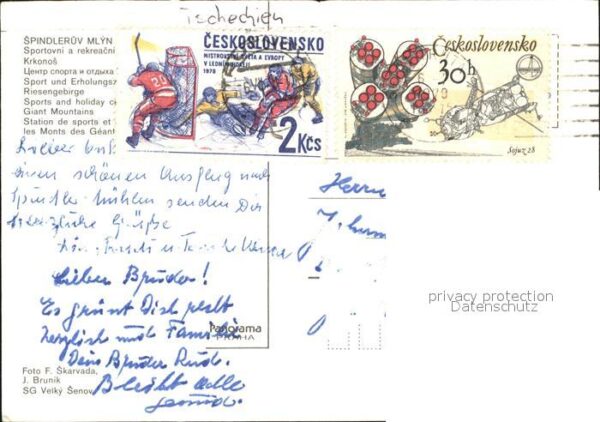 Tschechien
ŠPINDLERŮV MLÝN
Sportovní a rekreační
Krkonoš
Центр спорта и отдыха
Sport und Erholungsz
Riesengebirge
Sports and holiday c
Giant Mountains
Station de sports et
les Monts des Géant
ČESKOSLOVENSKO
MISTROVSTVÍ SVĚTA A EVROPY
V LEDNÍM HOKEJI
1978
2 Kčs
Československo
30 h
Sojuz 28
einen schönen Ausflug nach
Spindlermühlen senden Dir
herzliche Grüße
Lieber Bruder!
Es grüßt Dich recht
herzlich und Familie
Dein Bruder Rud.
Bleibt alle
gesund.
Herrn
Panorama
PRAHA
privacy protection
Datenschutz
Foto F. Škarvada,
J. Brunik
SG Velký Šenov